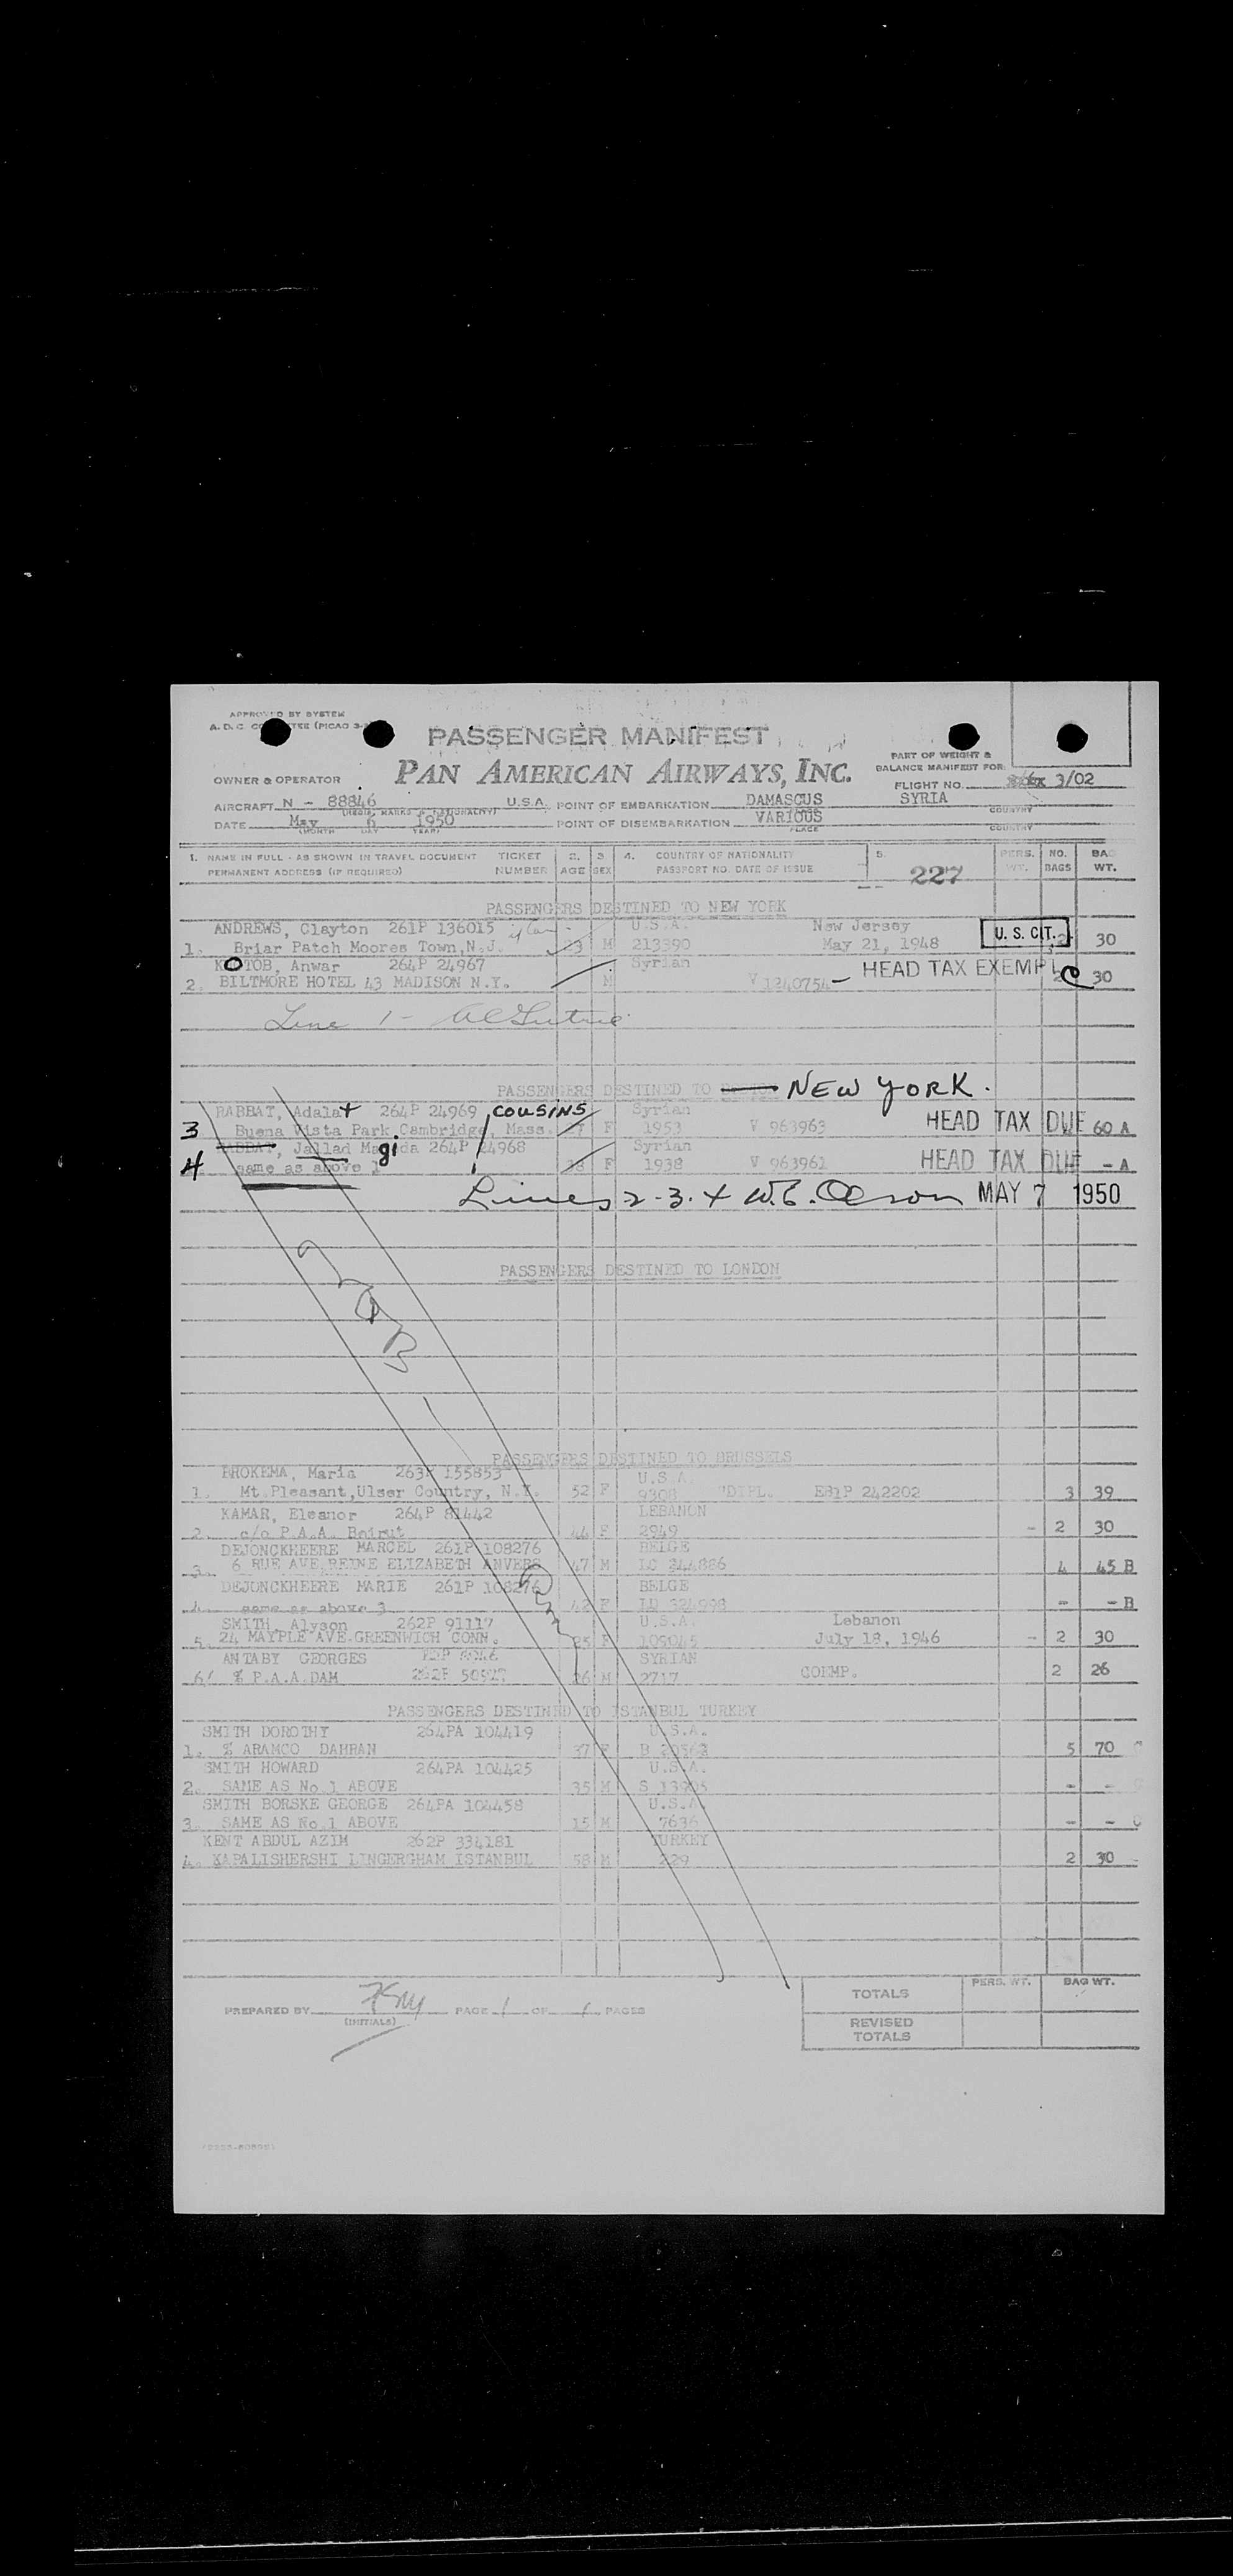 APPROVED BY SYSTEM
A. D. C. (PICAO
PASSENGER MANIFEST
PART OF WEIGHT &
BALANCE MANIFEST FOR:
OWNER & OPERATOR PAN AMERICAN AIRWAYS, INC.
FLIGHT NO. 3/02
AIRCRAFT N - 88846 U.S.A. POINT OF EMBARKATION DAMASCUS SYRIA
COUNTRY
DATE May 6 1950 POINT OF DISEMBARKATION VARIOUS
(MONTH DAY YEAR) PLACE COUNTRY
1. NAME IN FULL - AS SHOWN IN TRAVEL DOCUMENT TICKET 2. 3 4. COUNTRY OF NATIONALITY 5. PERS. NO. BAG
PERMANENT ADDRESS (IF REQUIRED) NUMBER AGE SEX PASSPORT NO. DATE OF ISSUE 227 WT. BAGS WT.
PASSENGERS DESTINED TO NEW YORK
ANDREWS, Clayton 261P 136015 U.S.A. New Jersey
1. Briar Patch Moores Town,N.J. 23 M 213390 May 21, 1948 U. S. CIT. 2 30
KOTOB, Anwar 264P 24967 Syrian HEAD TAX EXEMPT
2. BILTMORE HOTEL 43 MADISON N.Y. M V 1240754 30
Line 1 -
PASSENGERS DESTINED TO NEW YORK.
RABBAT, Adalat 264P 24969 COUSINS Syrian
3 Buena Vista Park Cambridge, Mass. F 1953 V 963963 HEAD TAX DUE 60 A
RABBAT, Jallad Magida 264P 24968 Syrian
4 same as above 1 18 F 1938 V 963961 HEAD TAX DUE - A
Lines 2-3-4 W.E. Olson MAY 7 1950
PASSENGERS DESTINED TO LONDON
PASSENGERS DESTINED TO BRUSSELS
BROKEMA, Maria 263P 155853 U.S.A.
1. Mt.Pleasant,Ulser Country, N.Y. 52 F 9308 "DIPL. EB1P 242202 3 39
KAMAR, Eleanor 264P 81442 LEBANON
2. c/o P.A.A. Beirut 44 F 2949 - 2 30
DEJONCKHEERE MARCEL 261P 108276 BELGE
3. 6 RUE AVE.REINE ELIZABETH ANVERS 47 M LC 344886 4 45 B
DEJONCKHEERE MARIE 261P 108276 BELGE
4. same as above 3 42 F LD 324998 - - B
SMITH, Alyson 262P 91117 U.S.A. Lebanon
5. 24 MAYPLE AVE.GREENWICH CONN. 25 F 109045 July 18, 1946 - 2 30
ANTABY GEORGES SYRIAN
6/ % P.A.A.DAM 262P 50527 26 M 2717 COEMP. 2 26
PASSENGERS DESTINED TO ISTANBUL TURKEY
SMITH DOROTHY 264PA 104419 U.S.A.
1. % ARAMCO DAHRAN 37 F B 5 70
SMITH HOWARD 264PA 104425 U.S.A.
2. SAME AS No.1 ABOVE 35 M S 13905 - -
SMITH BORSKE GEORGE 264PA 104458 U.S.A.
3. SAME AS No.1 ABOVE 15 M 7636 - - C
KENT ABDUL AZIM 262P 334181 TURKEY
4. KAPALISHERSHI LINGERGHAM ISTANBUL 58 M 229 2 30 -
PREPARED BY (INITIALS) PAGE 1 OF 1 PAGES
PERS. WT. BAG WT.
TOTALS
REVISED
TOTALS